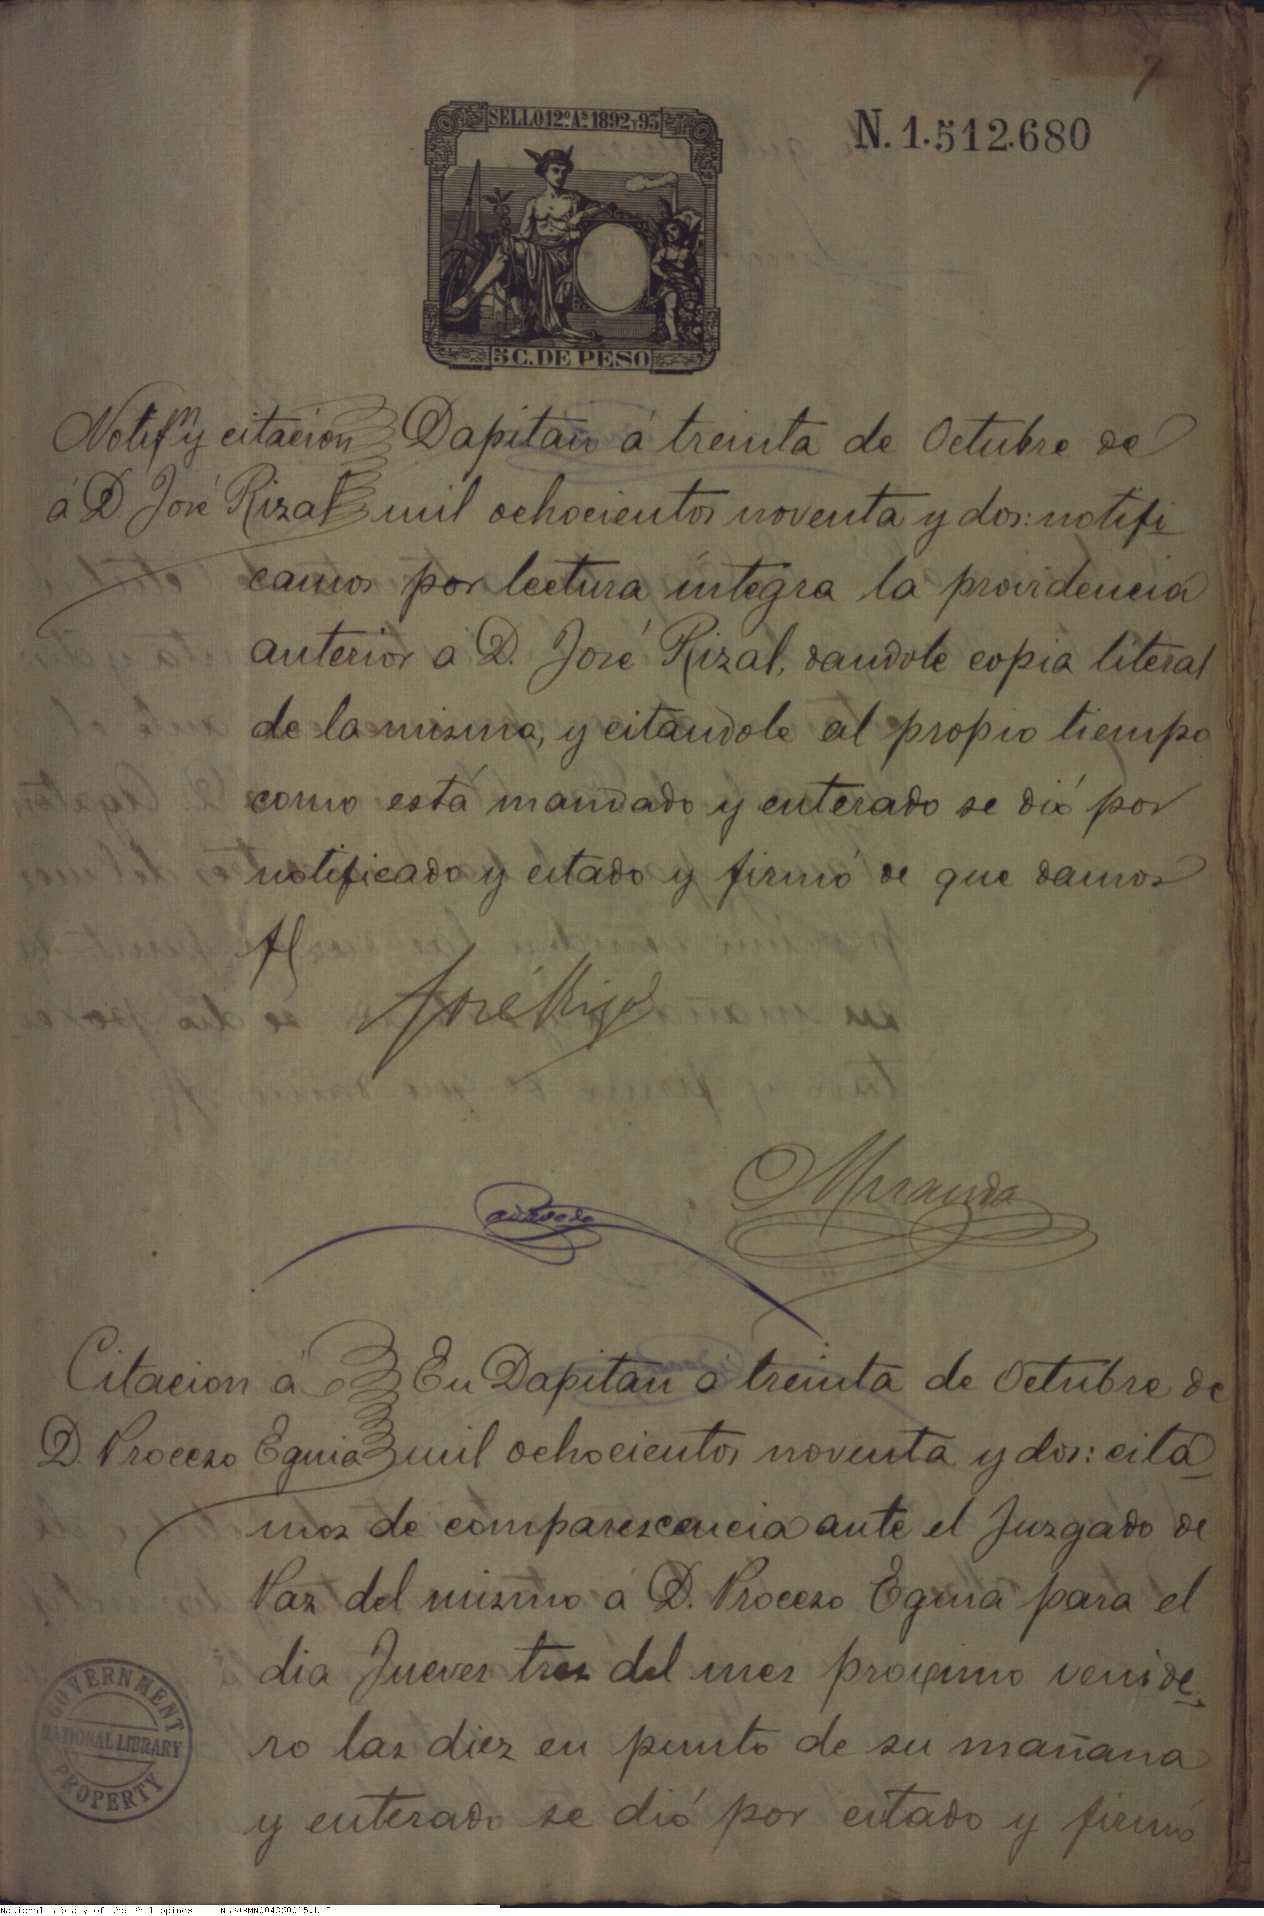 7
SELLO 12º Aº 1892 Y 93
N. 1.512.680
5 C. DE PESO
Notifn y citacion Dapitan á treinta de Octubre de
á D José Rizal mil ochocientos noventa y dos: notifi
camos por lectura integra la providencia
anterior a D. José Rizal, dandole copia literal
de la misma, y citandole al propio tiempo
como está mandado y enterado se dió por
notificado y citado y firmó de que damos
fé
José Rizal
Miranda
Citacion á En Dapitan á treinta de Octubre de
D. Proceso Eguia mil ochocientos noventa y dos: cita
mos de comparescencia ante el Juzgado de
Paz del mismo á D. Proceso Eguia para el
dia Jueves tres del mes proximo venide
ro las diez en punto de su mañana
y enterado se dió por citado y firmó
GOVERNMENT
NATIONAL LIBRARY
PROPERTY
National Library of the Philippines